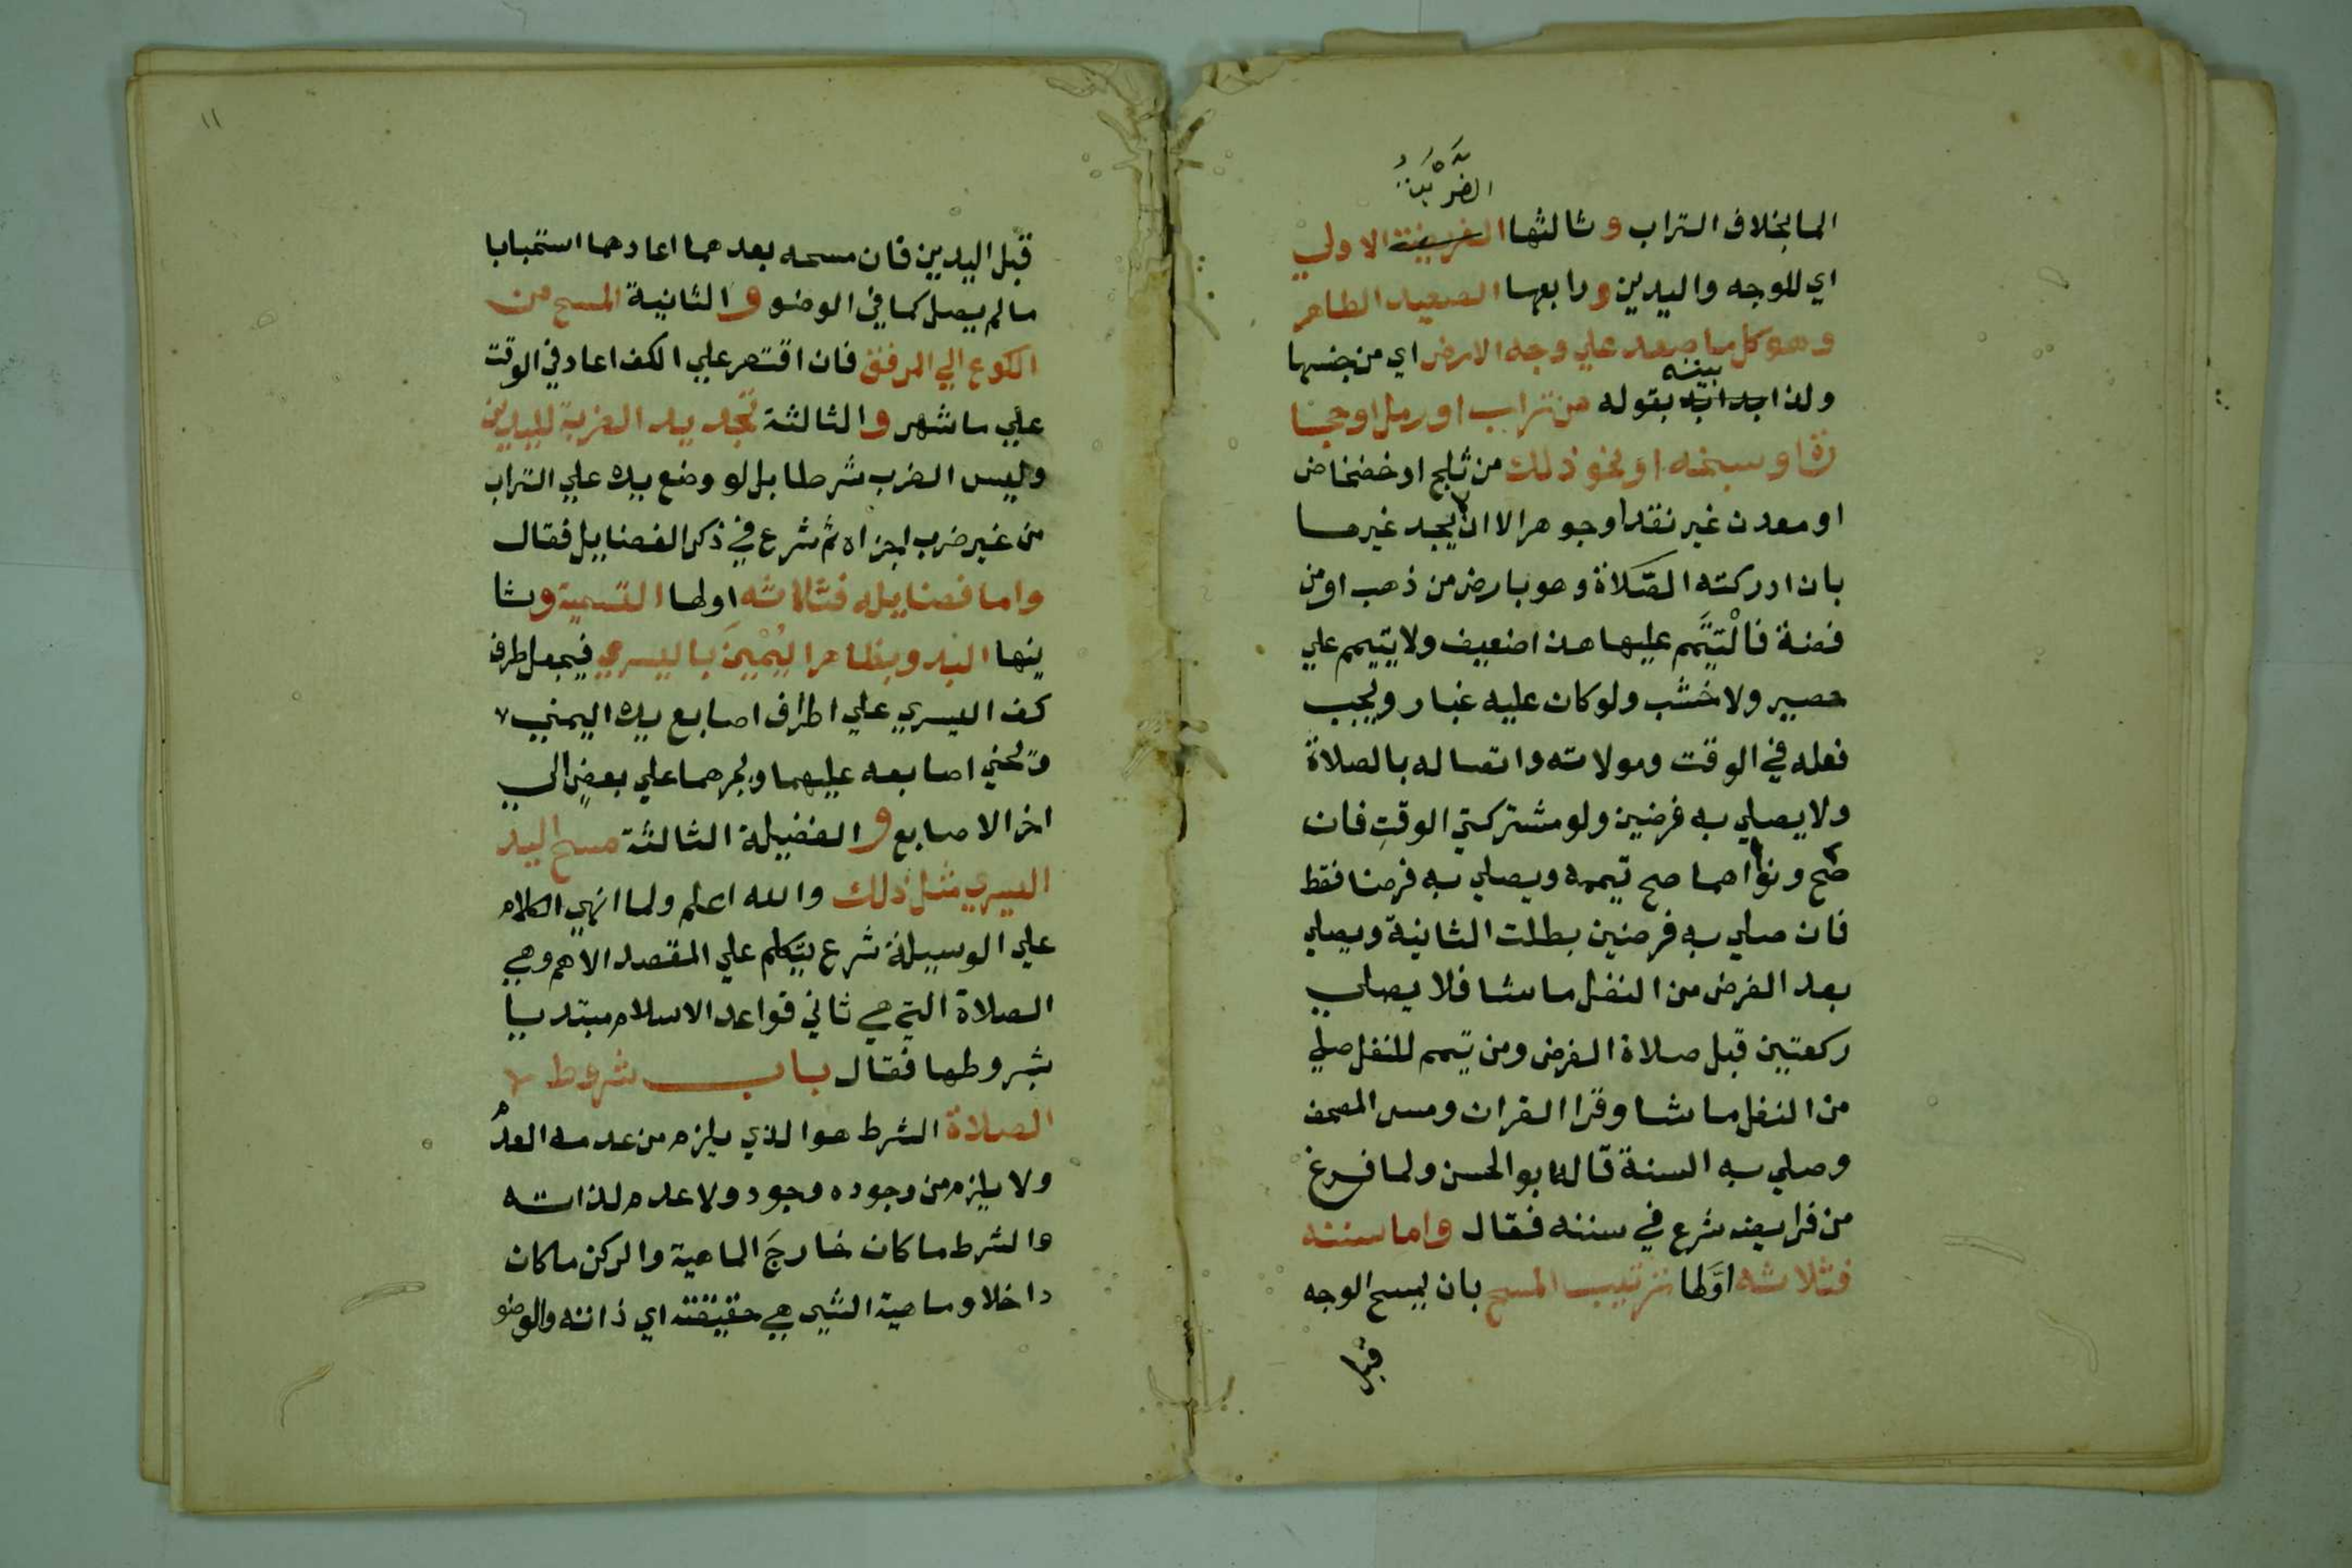 الضَّرْبَةُ
الما بخلاف التراب و ثالثها الفريضة الاولي
اي للوجه واليدين و رابعها الصعيد الطاهر
وهو كل ما صعد علي وجه الارض اي من جنسها
بينه
ولذا ابدابه بقوله من تراب او رمل او حجا
رة او سبخه او نحو ذلك من ثلج او خضخاض
او معدن غير نقد او جوهر الا ان لا يجد غيرهما
بان ادركته الصّلاة وهو بارض من ذهب او من
فضة فالْتيَّمم عليها هذا ضعيف ولا يتيمم علي
حصير ولا خشب ولو كان عليه غبار ويجب
فعله في الوقت وموالاته واتصاله بالصلاة
ولا يصلي به فرضين ولو مشتركتي الوقتِ فان
صح ونواهما صح تيممه ويصلي به فرضا فقط
فان صلي به فرضين بطلت الثانية ويصلي
بعد الفرض من النفل ماشا فلا يصلي
ركعتين قبل صلاة الفرض ومن تيمم للنفل صلي
من النفل ماشا وقرا القران ومس المصحف
وصلي به السنة قاله ابو الحسن ولما فرغ
من فرايضه شرع في سننه فقال واما سننه
فثلاثه اوَّلها ترتيب المسح بان يمسح الوجه
قبل
١١
قبل اليدين فان مسحه بعدهما اعادهما استحبابا
ما لم يصل كما في الوضو و الثانية المسح من
الكوع الي المرفق فان اقتصر علي الكف اعاد في الوقت
علي ما شهر و الثالثة تجديد الضربة لليدين
وليس الضرب شرطا بل لو وضع يده علي التراب
من غير ضرب اجزاه ثم شرع في ذكر الفضايل فقال
واما فضايله فثلاثه اولها التسمية وثا
ينها البدو بظاهر اليُمْيَن باليسري فيجعل طرف
كف اليسري علي اطراف اصابع يده اليمني
وتحني اصابعه عليهما ويمرهما علي بعضٍ الي
اخر الاصابع و الفضيلة الثالثة مسح اليد
اليسري مثل ذلك والله اعلم ولما انهي الكلام
علي الوسيلة شرع يتكلم علي المقصد الاهم وهي
الصلاة التي هي ثاني قواعد الاسلام مبتديا
بشروطها فقال باب شروط
الصلاة الشرط هو الذي يلزم من عدمه العدم
ولا يلزم من وجوده وجود ولا عدم لذاته
والشرط ما كان خارجَ الماهية والركن ما كان
داخلا وماهية الشيي هي حقيقته اي ذاته والوضو